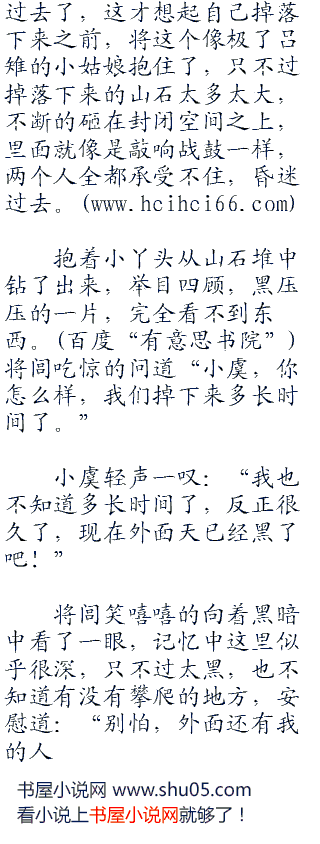 过去了，这才想起自己掉落
下来之前，将这个像极了吕
雉的小姑娘抱住了，只不过
掉落下来的山石太多太大，
不断的砸在封闭空间之上，
里面就像是敲响战鼓一样，
两个人全都承受不住，昏迷
过去。(www.hcihci66.com)
抱着小丫头从山石堆中
钻了出来，举目四顾，黑压
压的一片，完全看不到东
西。(百度“有意思书院”)
将闾吃惊的问道“小虞，你
怎么样，我们掉下来多长时
间了。”
小虞轻声一叹：“我也
不知道多长时间了，反正很
久了，现在外面天已经黑了
吧！”
将闾笑嘻嘻的向着黑暗
中看了一眼，记忆中这里似
乎很深，只不过太黑，也不
知道有没有攀爬的地方，安
慰道：“别怕，外面还有我
的人
书屋小说网 www.shu05.com
看小说上书屋小说网就够了！